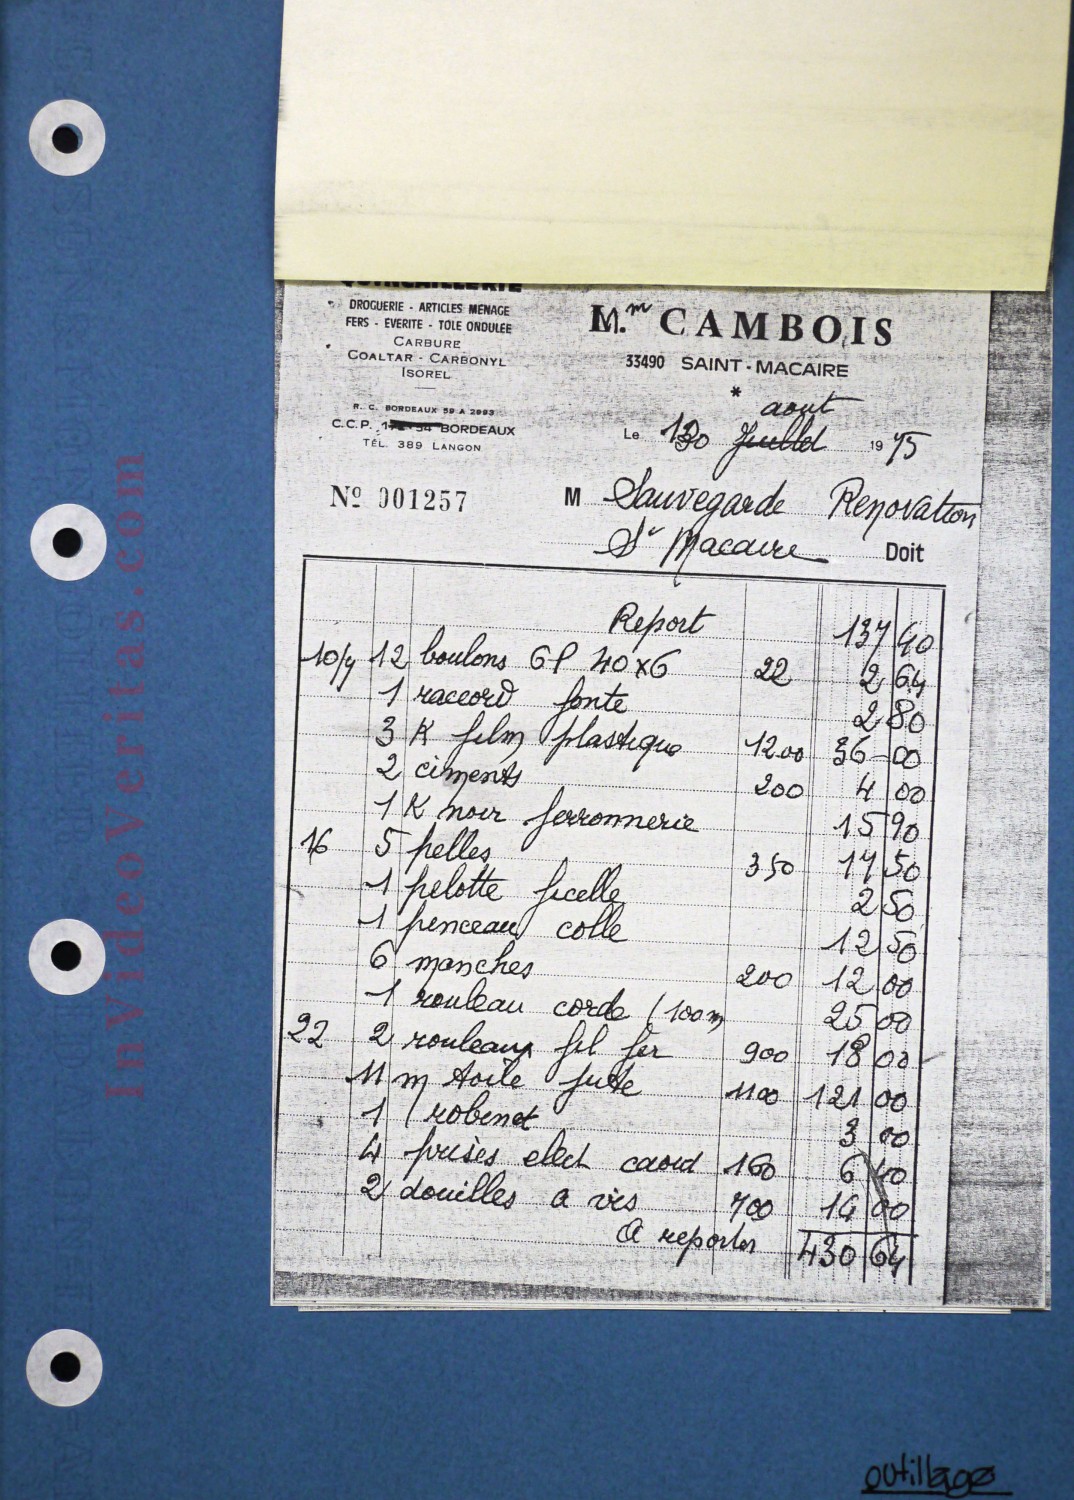 QUINCAILLERIE
DROGUERIE - ARTICLES MENAGE
FERS - EVERITE - TOLE ONDULÉE
CARBURE
COALTAR - CARBONYL
ISOREL
R. C. BORDEAUX 59 A 2993
C.C.P. BORDEAUX
TÉL. 389 LANGON
Nº 001257
M.me CAMBOIS
33490 SAINT-MACAIRE
*
aout
Le 130 Juillet 1975
M Sauvegarde Renovation
St Macaire Doit
Report 137 40
10/7 12 boulons GP 40x6 22 2 64
1 raccord fonte 2 80
3 K film plastique 1200 36-00
2 ciments 200 4 00
1 K noir ferronnerie 15 90
16 5 pelles 350 17 50
1 pelotte ficelle 2 50
1 pinceau colle 12 50
6 manches 200 12 00
1 rouleau corde (100m 25 00
22 2 rouleaux fil fer 900 18 00
11 m toile jute 1100 121 00
1 robinet 3 00
4 prises elect caord 160 6 40
2 douilles a vis 700 14 00
A reporter 430 64
InVideoVeritas.com
outillage